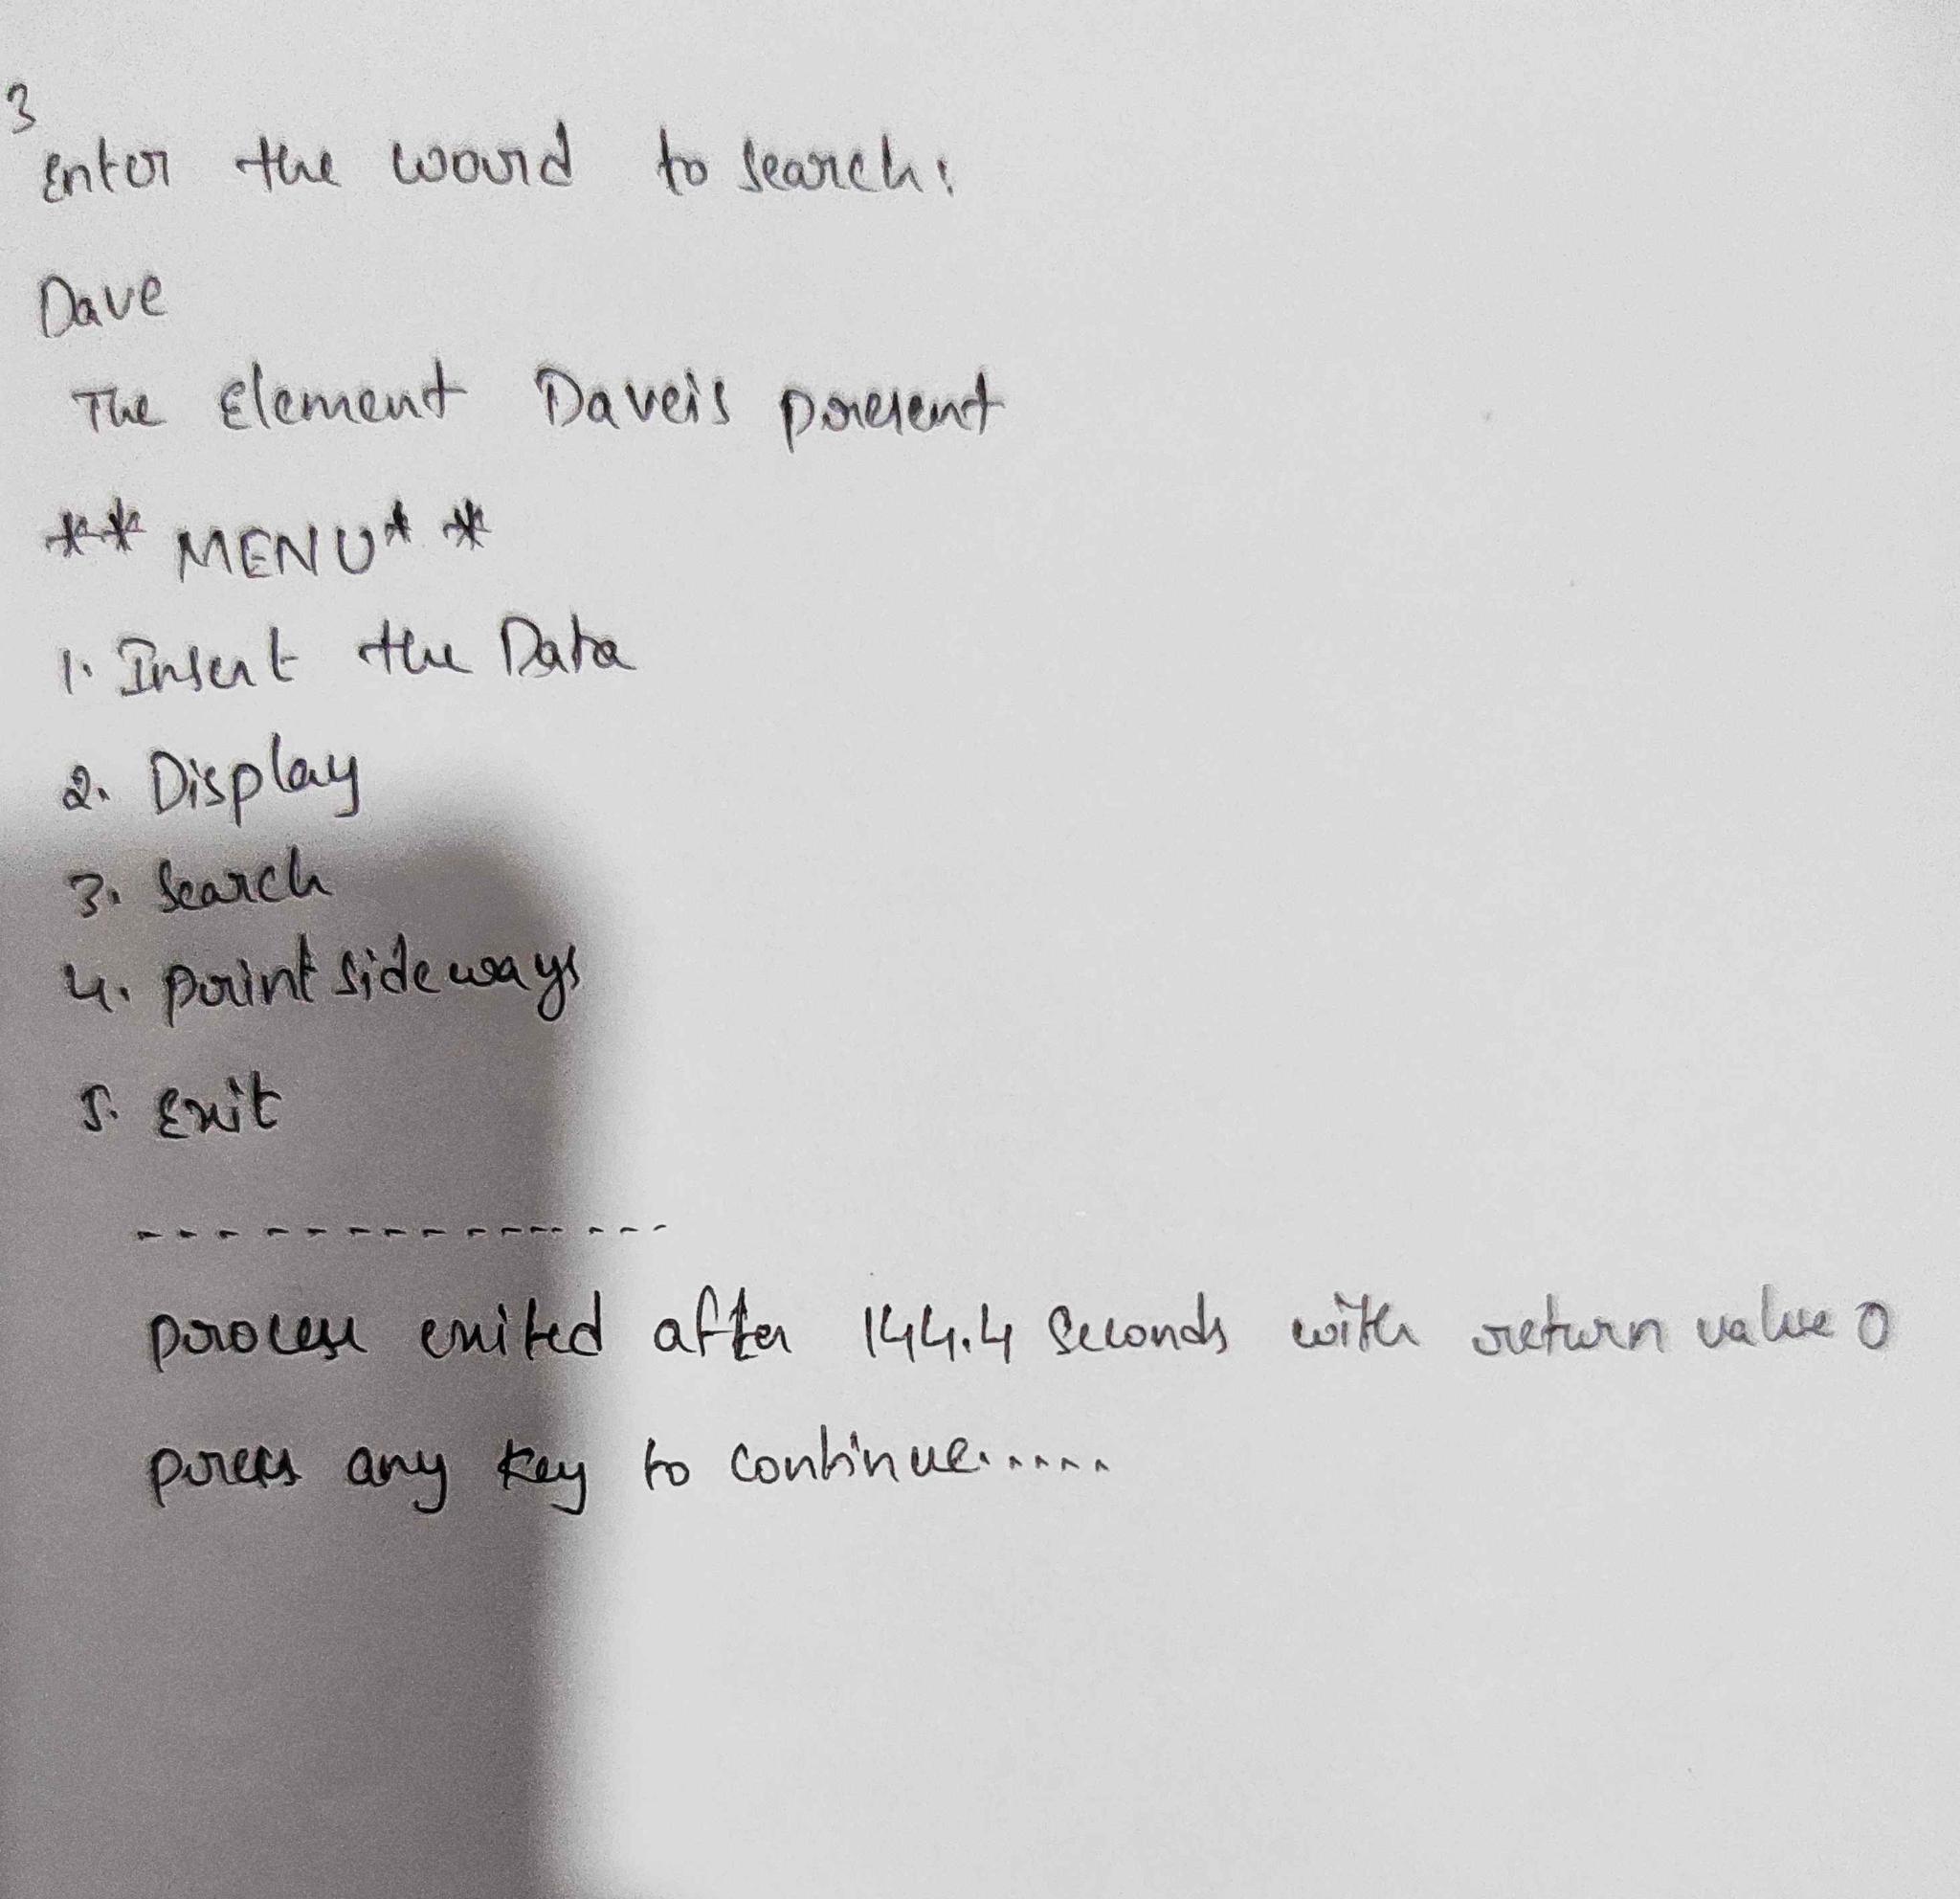 3
Enter the word to search:
Dave
The Element Daveis present
** MENU**
1. Insert the Data
2. Display
3. Search
4. print sideways
5. Exit
----------------
process exited after 144.4 seconds with return value 0
press any key to continue.....